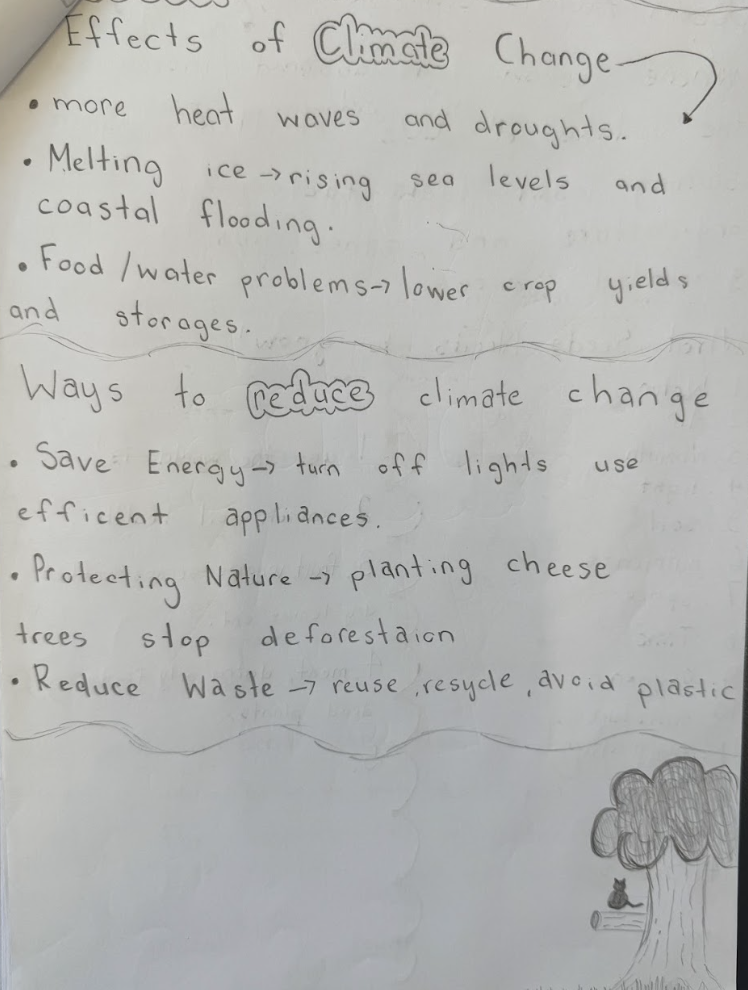 Effects of Climate Change
• more heat waves and droughts.
• Melting ice → rising sea levels and
coastal flooding.
• Food / water problems → lower crop yields
and storages.
Ways to reduce climate change
• Save Energy → turn off lights use
efficent appliances.
• Protecting Nature → planting cheese
trees stop deforestaion
• Reduce Waste → reuse, resycle, avoid plastic